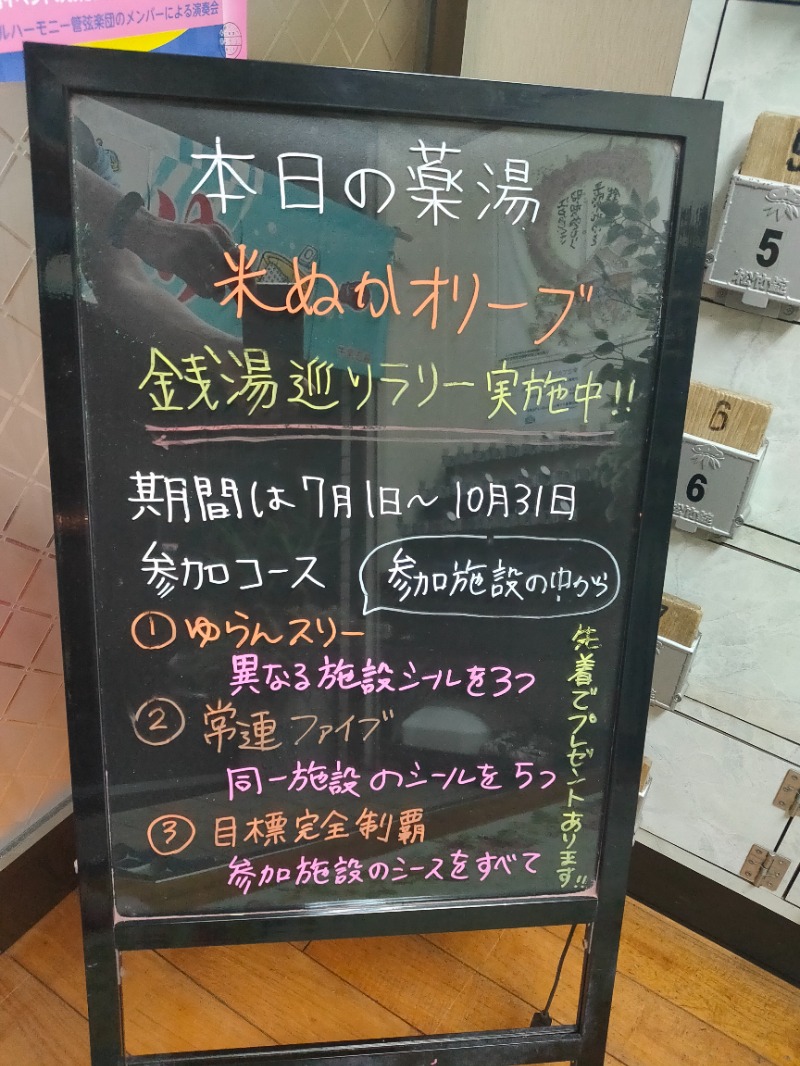 ルハーモニー管弦楽団のメンバーによる演奏会
本日の薬湯
米ぬかオリーブ
銭湯巡りラリー実施中!!
期間は7月1日～10月31日
参加コース
参加施設の中から
①ゆらんスリー
異なる施設シールを3つ
②常連ファイブ
同一施設のシールを5つ
③目標完全制覇
参加施設のシースをすべて
先着でプレゼントあります!!
5
5
松竹錠
6
6
松竹錠
7